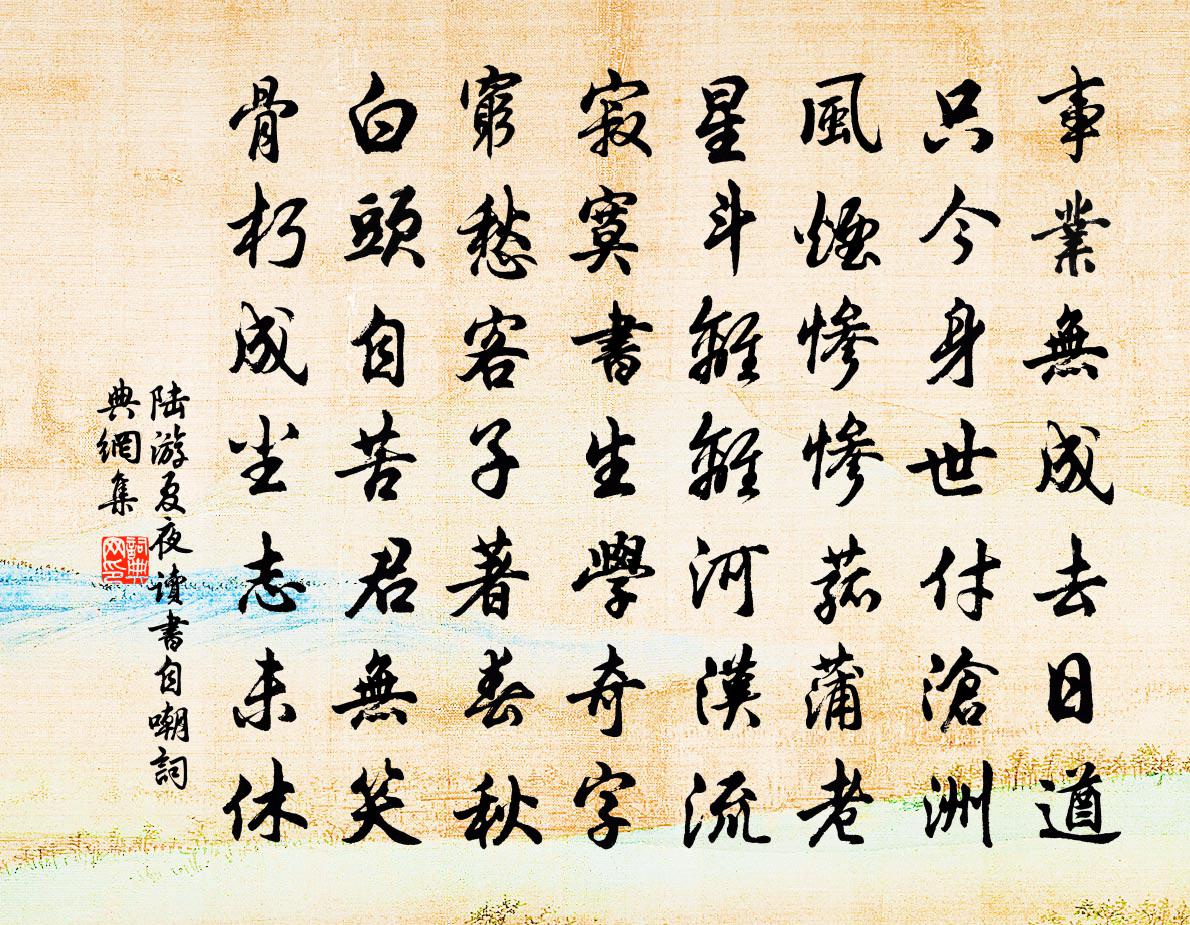 事業無成去日遒
只今身世付滄洲
風煙慘慘菰蒲老
星斗離離河漢流
寂寞書生學奇字
窮愁客子著春秋
白頭自苦君無笑
骨朽成尘志未休
陆游夏夜讀書自嘲詞
典網集
詞典
网印